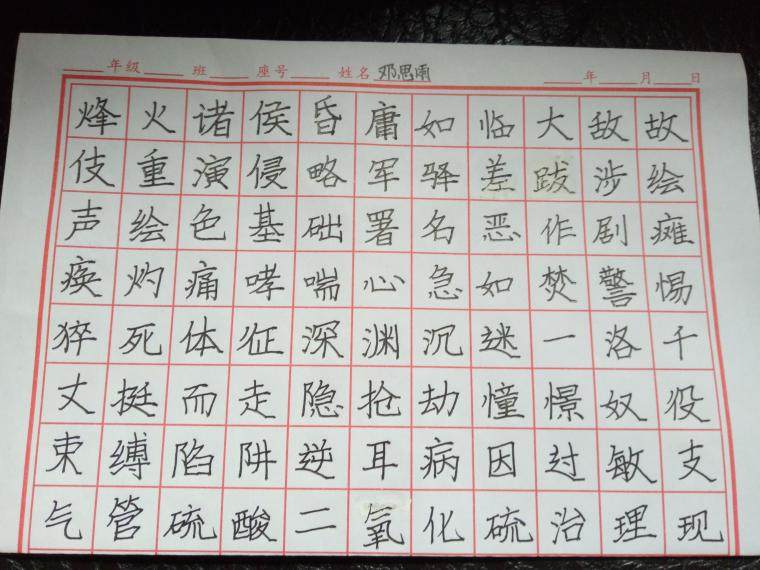 年级 班 座号 姓名 邓思雨 年 月 日
烽火诸侯昏庸如临大敌故
伎重演侵略军驿差跋涉绘
声绘色基础署名恶作剧瘫
痪灼痛哮喘心急如焚警惕
猝死体征深渊沉迷一洛千
丈挺而走隐抢劫憧憬奴役
束缚陷阱逆耳病因过敏支
气管硫酸二氧化硫治理现